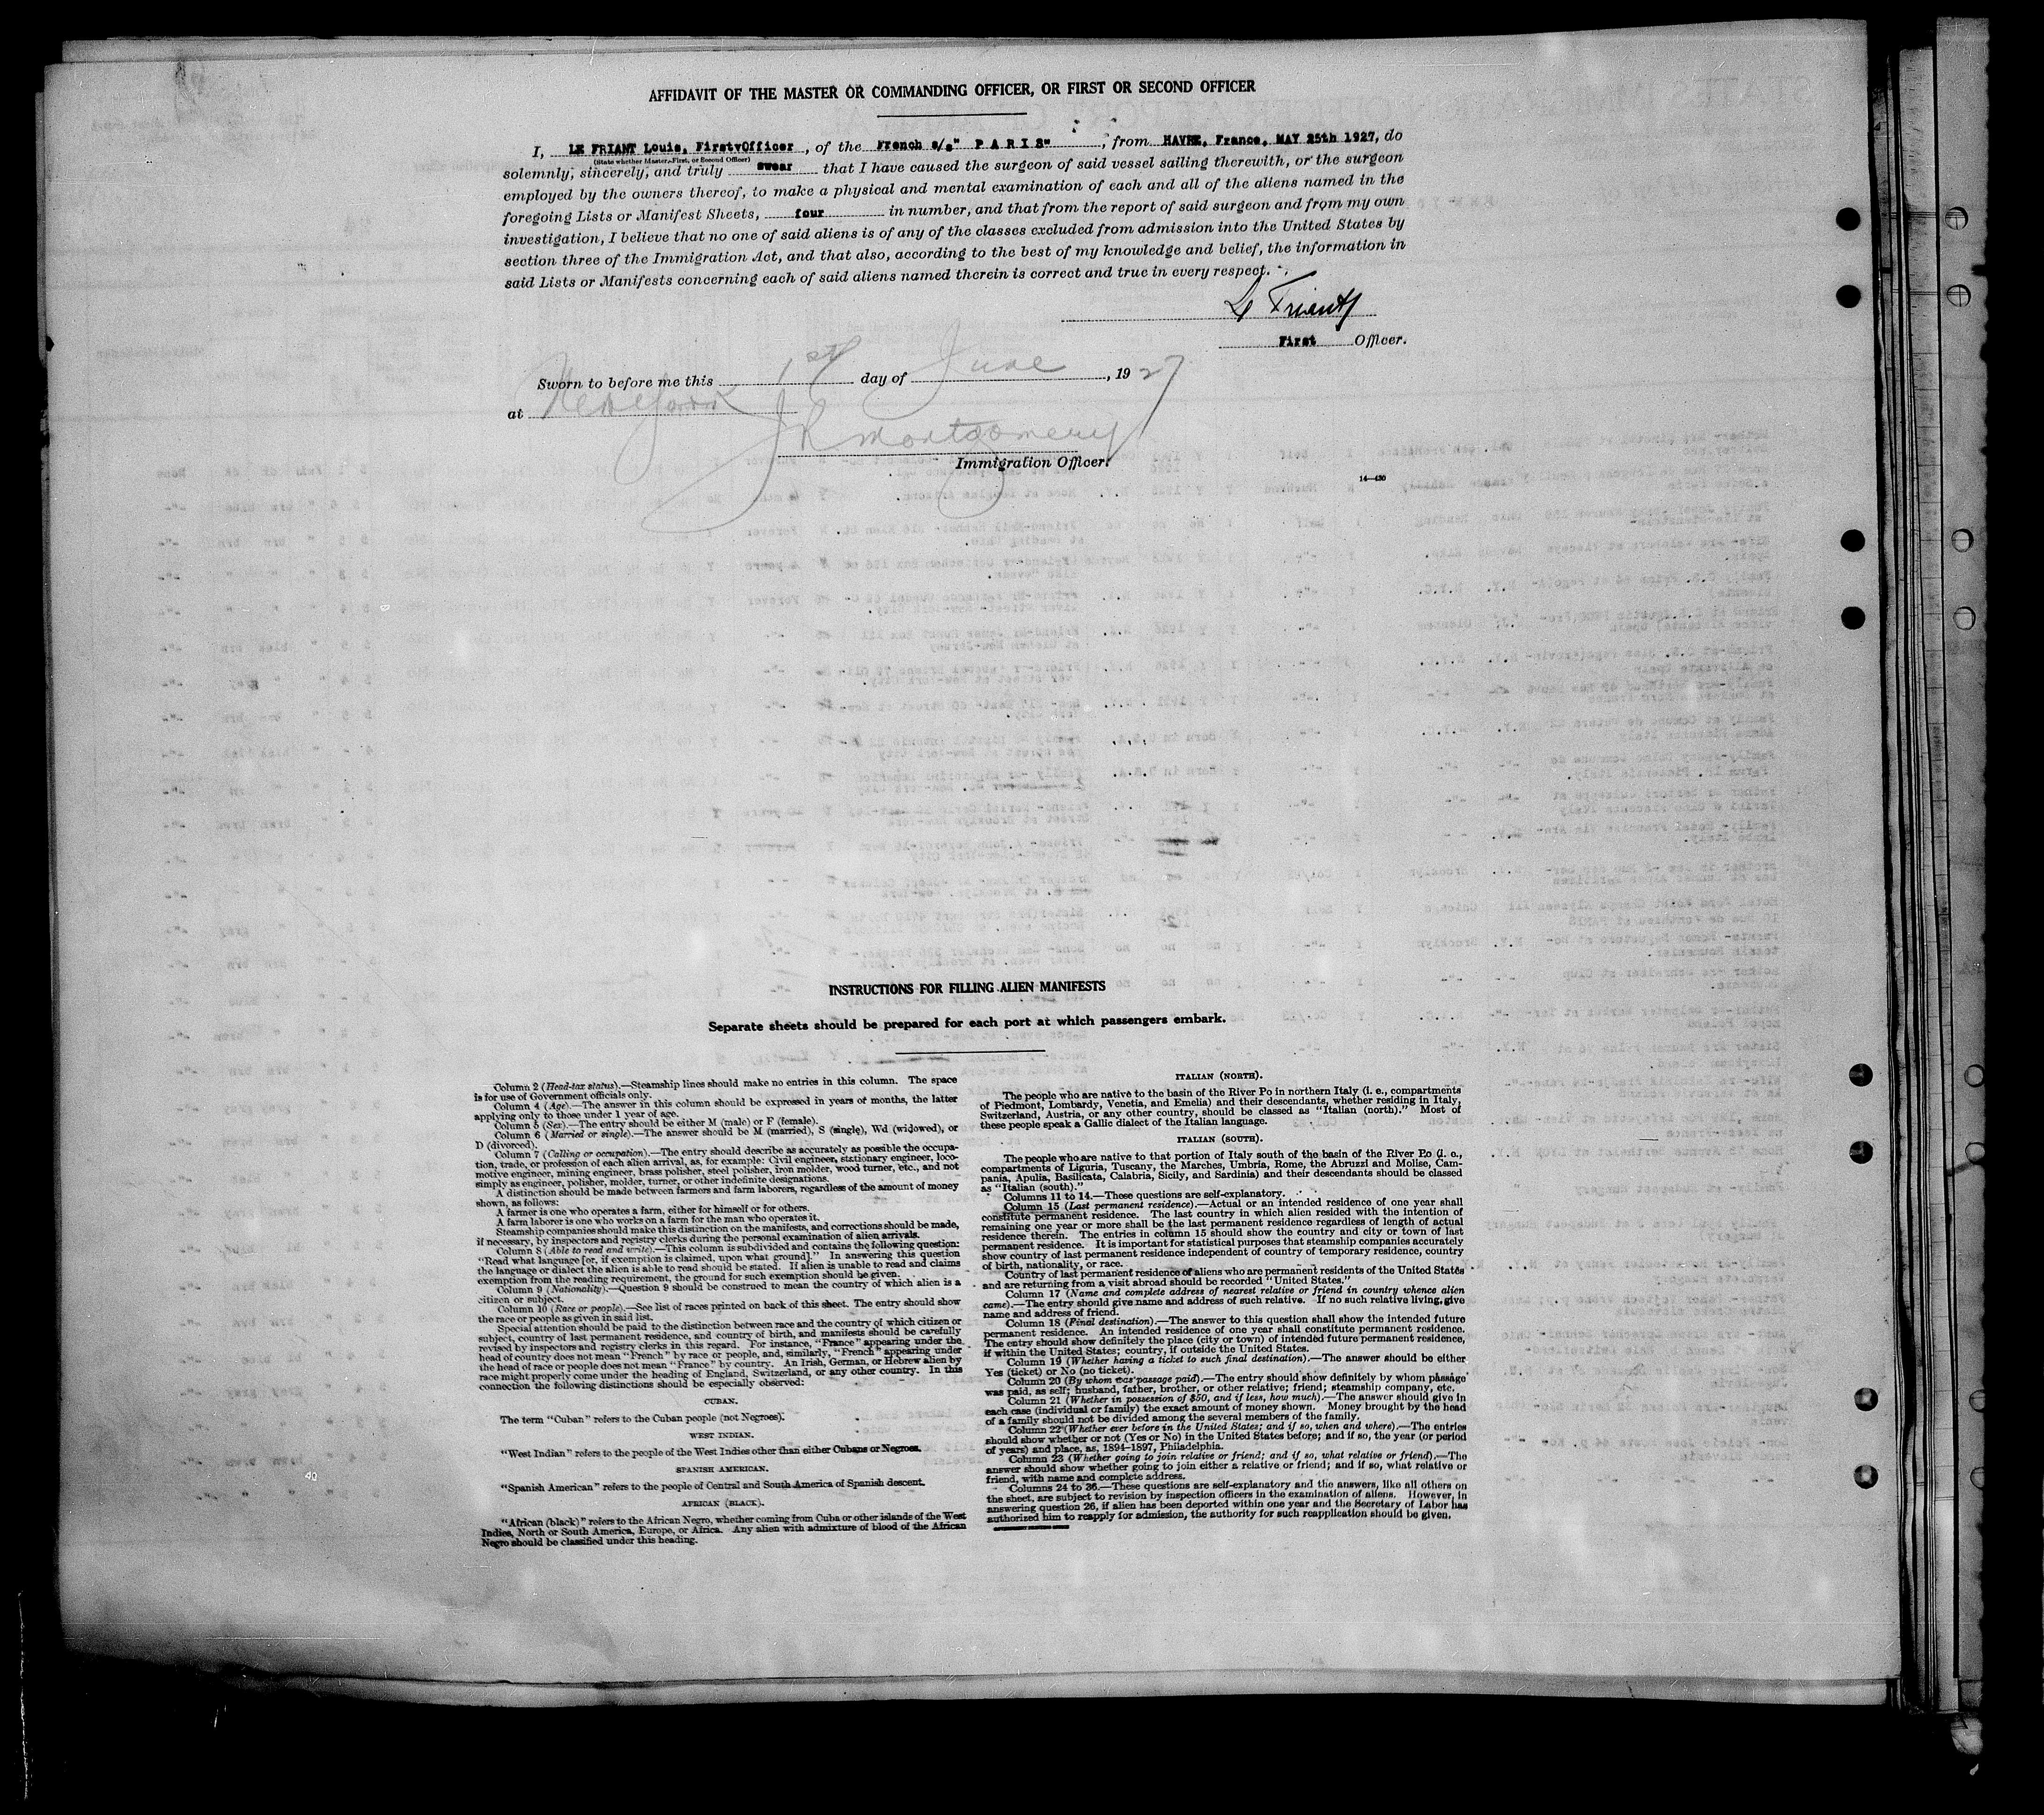 AFFIDAVIT OF THE MASTER OR COMMANDING OFFICER, OR FIRST OR SECOND OFFICER
I, LE FRIANT Louis, First Officer, of the French s/s" P A R I S", from HAVRE, France, MAY 25th 1927, do
(State whether Master, First, or Second Officer)
solemnly, sincerely, and truly swear that I have caused the surgeon of said vessel sailing therewith, or the surgeon
employed by the owners thereof, to make a physical and mental examination of each and all of the aliens named in the
foregoing Lists or Manifest Sheets, four in number, and that from the report of said surgeon and from my own
investigation, I believe that no one of said aliens is of any of the classes excluded from admission into the United States by
section three of the Immigration Act, and that also, according to the best of my knowledge and belief, the information in
said Lists or Manifests concerning each of said aliens named therein is correct and true in every respect.
Le Friant
First Officer.
Sworn to before me this 1st day of June, 1927
at New York
J R Montgomery
Immigration Officer.
14—430
INSTRUCTIONS FOR FILLING ALIEN MANIFESTS
Separate sheets should be prepared for each port at which passengers embark.
Column 2 (Head-tax status).—Steamship lines should make no entries in this column. The space
is for use of Government officials only.
Column 4 (Age).—The answer in this column should be expressed in years or months, the latter
applying only to those under 1 year of age.
Column 5 (Sex).—The entry should be either M (male) or F (female).
Column 6 (Married or single).—The answer should be M (married), S (single), Wd (widowed), or
D (divorced).
Column 7 (Calling or occupation).—The entry should describe as accurately as possible the occupa-
tion, trade, or profession of each alien arrival, as, for example: Civil engineer, stationary engineer, loco-
motive engineer, mining engineer, brass polisher, steel polisher, iron molder, wood turner, etc., and not
simply as engineer, polisher, molder, turner, or other indefinite designations.
A distinction should be made between farmers and farm laborers, regardless of the amount of money
shown, as follows:
A farmer is one who operates a farm, either for himself or for others.
A farm laborer is one who works on a farm for the man who operates it.
Steamship companies should make this distinction on the manifests, and corrections should be made,
if necessary, by inspectors and registry clerks during the personal examination of alien arrivals.
Column 8 (Able to read and write).—This column is subdivided and contains the following question:
"Read what language [or, if exemption is claimed, upon what ground]." In answering this question
the language or dialect the alien is able to read should be stated. If alien is unable to read and claims
exemption from the reading requirement, the ground for such exemption should be given.
Column 9 (Nationality).—Question 9 should be construed to mean the country of which alien is a
citizen or subject.
Column 10 (Race or people).—See list of races printed on back of this sheet. The entry should show
the race or people as given in said list.
Special attention should be paid to the distinction between race and the country of which citizen or
subject, country of last permanent residence, and country of birth, and manifests should be carefully
revised by inspectors and registry clerks in this regard. For instance, "France" appearing under the
head of country does not mean "French" by race or people, and, similarly, "French" appearing under
the head of race or people does not mean "France" by country. An Irish, German, or Hebrew alien by
race might properly come under the heading of England, Switzerland, or any other country. In this
connection the following distinctions should be especially observed:
CUBAN.
The term "Cuban" refers to the Cuban people (not Negroes).
WEST INDIAN.
"West Indian" refers to the people of the West Indies other than either Cubans or Negroes.
SPANISH AMERICAN.
"Spanish American" refers to the people of Central and South America of Spanish descent.
AFRICAN (BLACK).
"African (black)" refers to the African Negro, whether coming from Cuba or other islands of the West
Indies, North or South America, Europe, or Africa. Any alien with admixture of blood of the African
Negro should be classified under this heading.
ITALIAN (NORTH).
The people who are native to the basin of the River Po in northern Italy (i. e., compartments
of Piedmont, Lombardy, Venetia, and Emelia) and their descendants, whether residing in Italy,
Switzerland, Austria, or any other country, should be classed as "Italian (north)." Most of
these people speak a Gallic dialect of the Italian language.
ITALIAN (SOUTH).
The people who are native to that portion of Italy south of the basin of the River Po (i. e.,
compartments of Liguria, Tuscany, the Marches, Umbria, Rome, the Abruzzi and Molise, Cam-
pania, Apulia, Basilicata, Calabria, Sicily, and Sardinia) and their descendants should be classed
as "Italian (south)."
Columns 11 to 14.—These questions are self-explanatory.
Column 15 (Last permanent residence).—Actual or an intended residence of one year shall
constitute permanent residence. The last country in which alien resided with the intention of
remaining one year or more shall be the last permanent residence regardless of length of actual
residence therein. The entries in column 15 should show the country and city or town of last
permanent residence. It is important for statistical purposes that steamship companies accurately
show country of last permanent residence independent of country of temporary residence, country
of birth, nationality, or race.
Country of last permanent residence of aliens who are permanent residents of the United States
and are returning from a visit abroad should be recorded "United States."
Column 17 (Name and complete address of nearest relative or friend in country whence alien
came).—The entry should give name and address of such relative. If no such relative living, give
name and address of friend.
Column 18 (Final destination).—The answer to this question shall show the intended future
permanent residence. An intended residence of one year shall constitute permanent residence.
The entry should show definitely the place (city or town) of intended future permanent residence,
if within the United States; country, if outside the United States.
Column 19 (Whether having a ticket to such final destination).—The answer should be either
Yes (ticket) or No (no ticket).
Column 20 (By whom was passage paid).—The entry should show definitely by whom passage
was paid, as self; husband, father, brother, or other relative; friend; steamship company, etc.
Column 21 (Whether in possession of $50, and if less, how much).—The answer should give in
each case (individual or family) the exact amount of money shown. Money brought by the head
of a family should not be divided among the several members of the family.
Column 22 (Whether ever before in the United States; and if so, when and where).—The entries
should show whether or not (Yes or No) in the United States before; and if so, the year (or period
of years) and place, as, 1894–1897, Philadelphia.
Column 23 (Whether going to join relative or friend; and if so, what relative or friend).—The
answer should show whether going to join either a relative or friend; and if so, what relative or
friend, with name and complete address.
Columns 24 to 36.—These questions are self-explanatory and the answers, like all others on
the sheet, are subject to revision by inspection officers in the examination of aliens. However, in
answering question 26, if alien has been deported within one year and the Secretary of Labor has
authorized him to reapply for admission, the authority for such reapplication should be given.